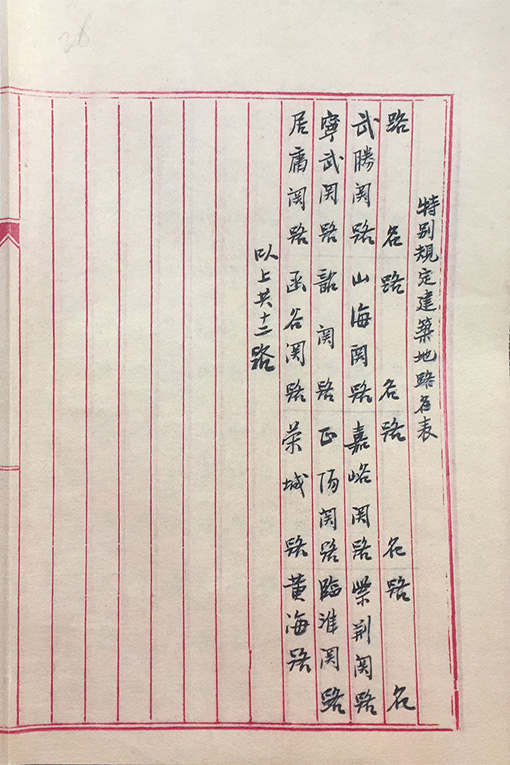 36
特别規定建築地路名表
路名 路名 路名 路名
武勝関路 山海関路 嘉峪関路 紫荆関路
寧武関路 韶関路 正陽関路 臨淮関路
居庸関路 函谷関路 栄城路 黄海路
以上共十二路